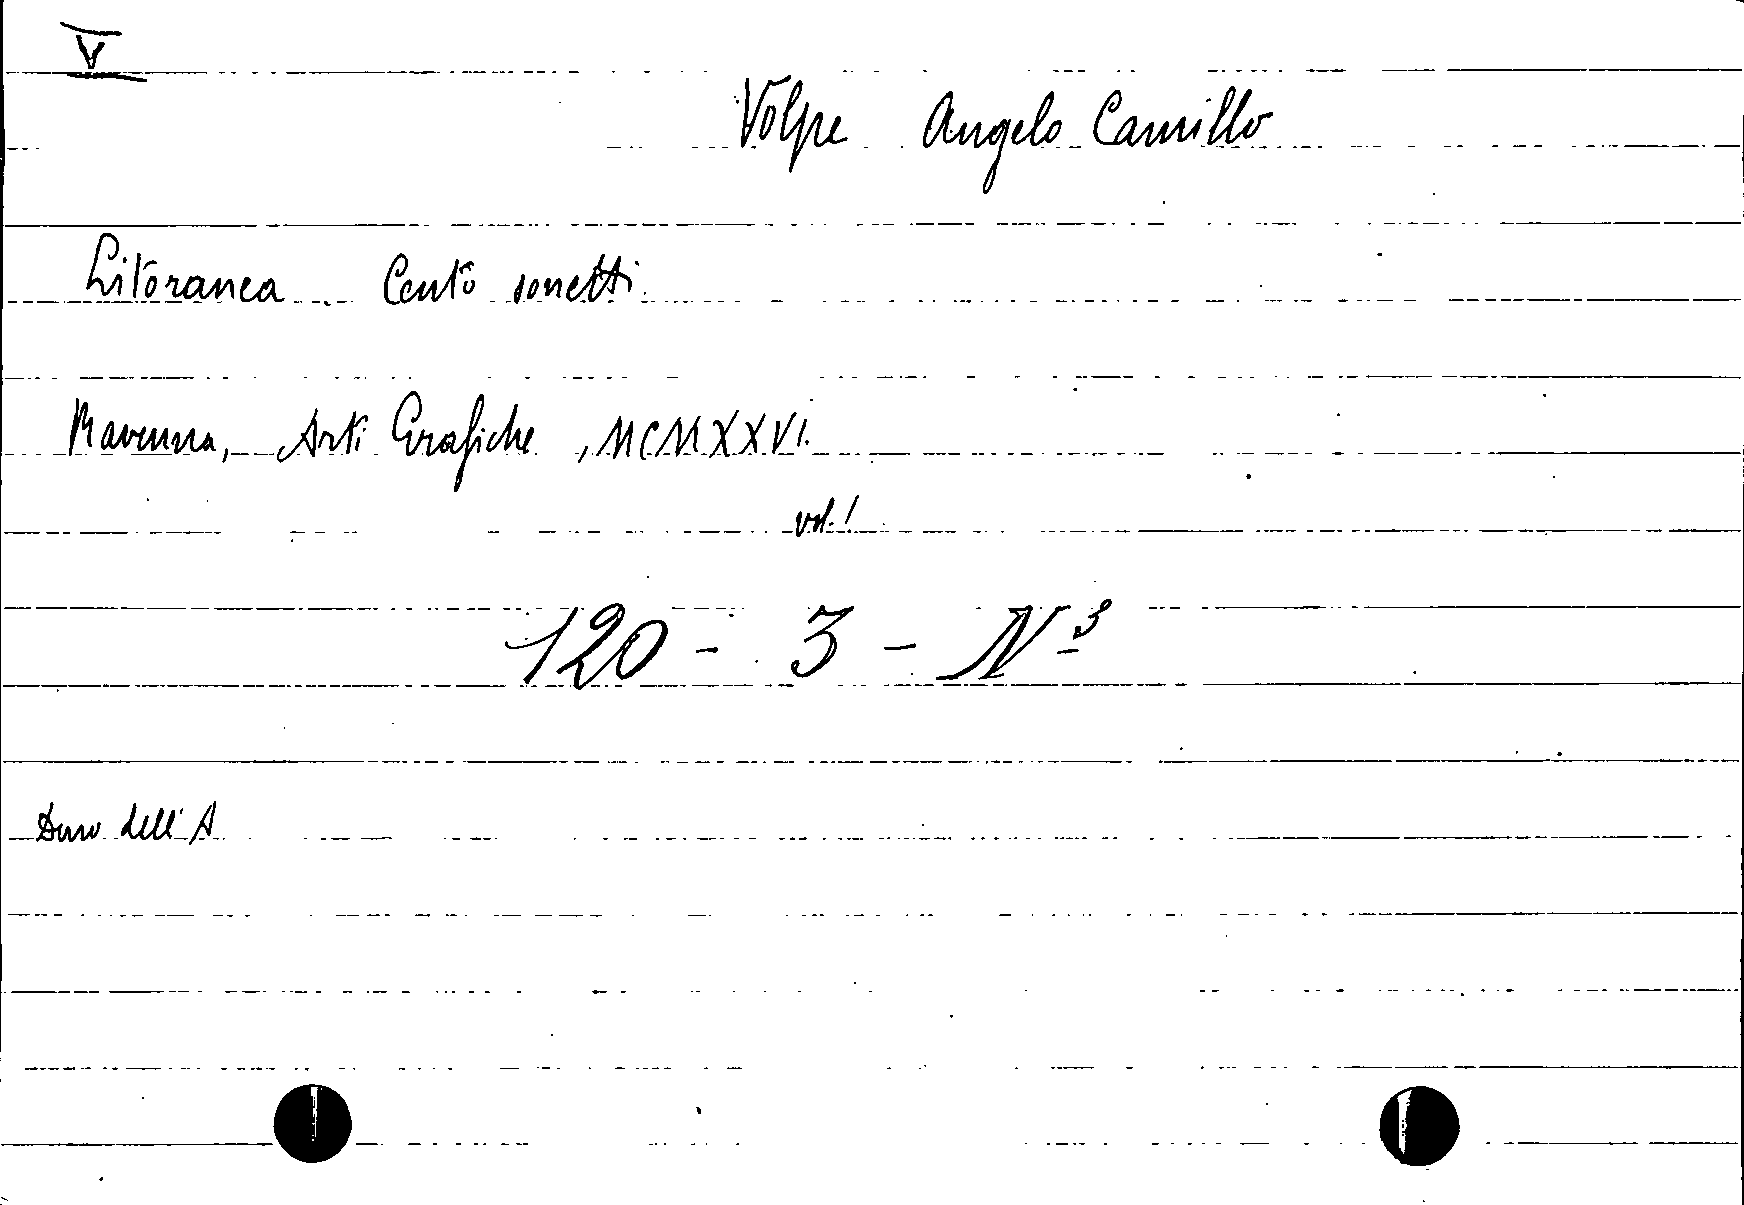 V
Volpe Angelo Camillo
Litoranea. Cento sonetti.
Ravenna, Arti Grafiche, MCMXXVI.
vol. 1
120 - 3 - N 3
Dono dell'A